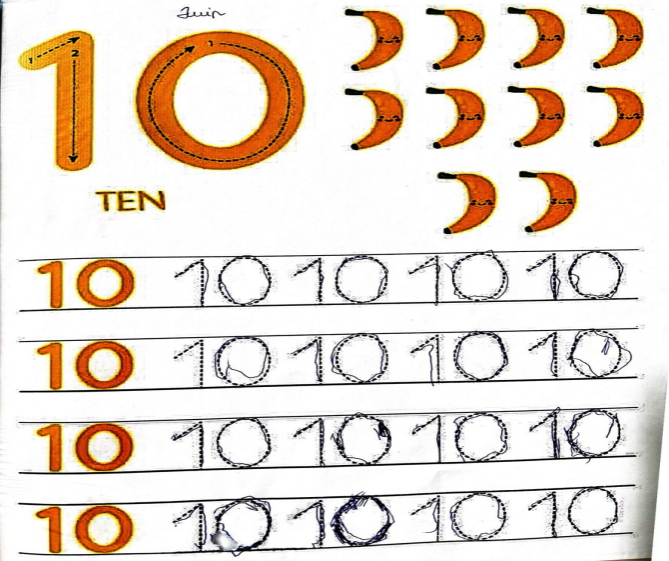 10
TEN
10 10 10 10 10
10 10 10 10 10
10 10 10 10 10
10 10 10 10 10